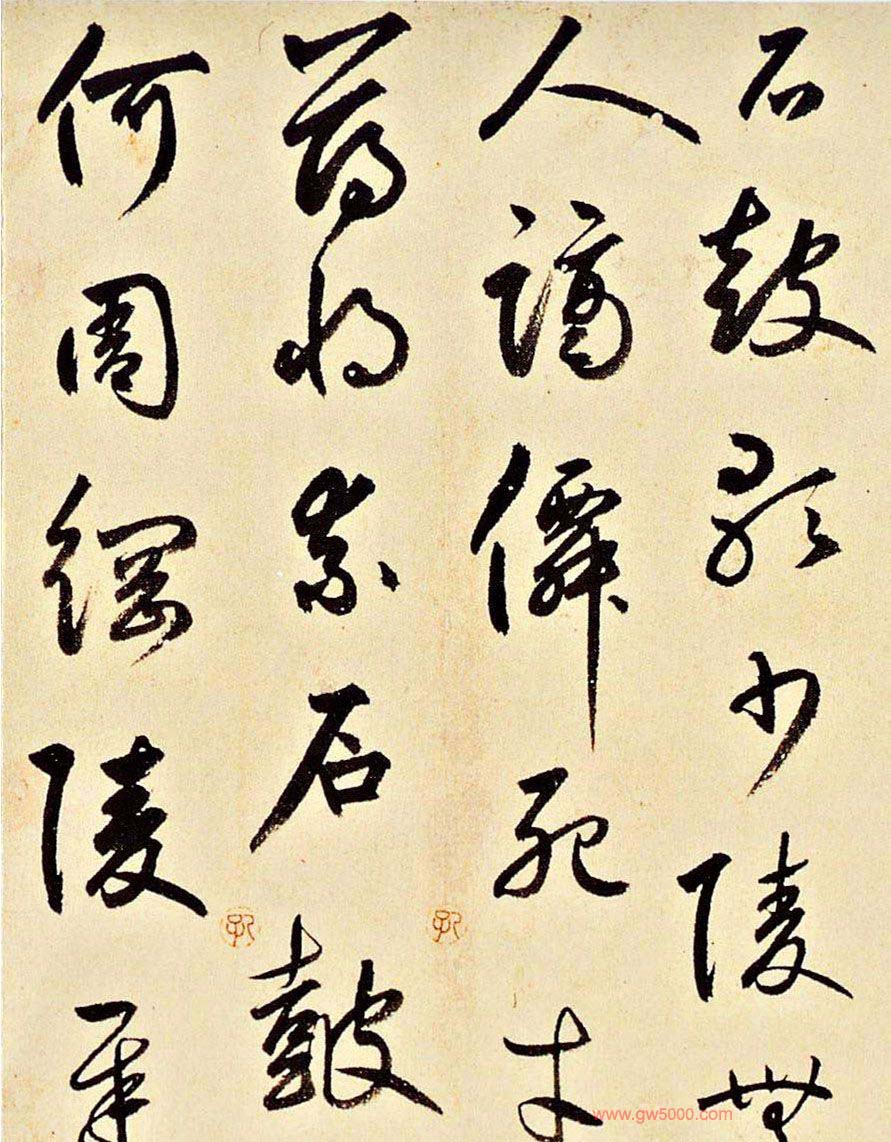 石鼓歌少陵無
人謫僊死才
薄將奈石鼓
何周綱陵遲
www.gw5000.com